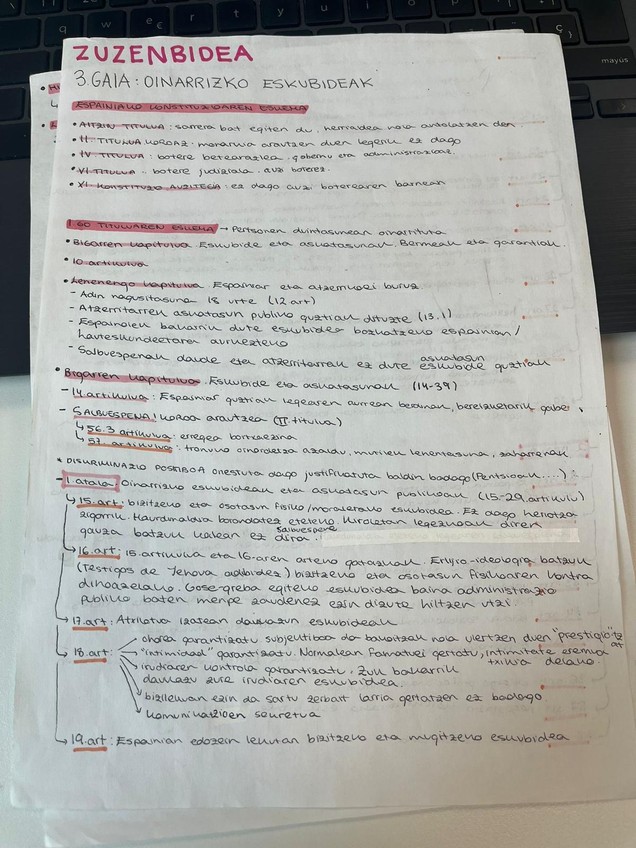 ZUZENBIDEA
3.GAIA: OINARRIZKO ESKUBIDEAK
ESPAINIAKO KONSTITUZIOAREN ESKEMA
• AITZIN TITULUA: sarrera bat egiten du, herrialdea nola antolatzen den
• II TITULUA KOROAZ: monarkia arautzen duen legeria ez dago
• IV TITULUA: botere betearazlea. gobernu eta administrazioaz.
• VI TITULUA: botere judiziala. auzi boterez.
• XI KONSTITUZIO AUZITEGIA: ez dago auzi boterearen barnean
1.GO TITULUAREN ESKEMA → Pertsonen duintasunean oinarrituta
• Bigarren kapitulua Eskubide eta askatasunak. Bermeak eta garantiak.
• 10 artikulua
• Lehenengo kapitulua Espainiar eta atzerrikoei buruz.
- Adin nagusitasuna 18 urte (12 art)
- Atzerritarrek askatasun publiko guztiak dituzte (13.1)
- Espainolek bakarrik dute eskubidea bozkatzeko espainian /
hauteskundeetara aurkezteko
- Salbuespenak daude eta atzerritarrak ez dute askatasun eskubide guztiak
• Bigarren kapitulua. Eskubide eta askatasunak (14-39)
- 14.artikulua: Espainiar guztiak legearen aurrean berdinak, bereizketarik gabe.
- SALBUESPENA! koroa arautzea (II.titulua)
↳ 56.3 artikulua: erregea bortxaezina
↳ 57. artikulua: tronuko oinordetza azaldu, mutilek lehentasuna, zaharrenak
• DISKRIMINAZIO POSITIBOA onestuta dago justifikatuta baldin badago (Pentsioak....)
- 1.atala: Oinarrizko eskubideak eta askatasun publikoak (15-29.artikulu)
↳ 15.art: bizitzeko eta osotasun fisiko/moralerako eskubidea. Ez dago heriotza
zigorrik. Haurdunaldia borondatez eteteko. Kiroletan legezkoak diren
gauza batzuk kalean ez dira. salbuespena
↳ 16.art: 15.artikulua eta 16-aren arteko gatazkak. Erlijio-ideologia batzuk
(Testigos de Jehova adibidez) bizitzeko eta osotasun fisikoaren kontra
dihoazelako. Gose-greba egiteko eskubidea baina administrazio
publiko baten menpe zaudenez ezin dizute hiltzen utzi.
→ 17.art: Atxilotua izatean dauzkazun eskubideak
→ 18.art: ohorea garantizatu subjetiboa da bakoitzak nola ulertzen duen "prestigioa"
"intimidad" garantizatu. Normalean famatuei gertatu, intimitate eremua txikia delako.
irudiaren kontrola garantizatu. Zuk bakarrik
daukazu zure irudiaren eskubidea.
bizilekuan ezin da sartu zerbait larria gertatzen ez badago
komunikazioen sekretua
↳ 19.art: Espainian edozein lekutan bizitzeko eta mugitzeko eskubidea